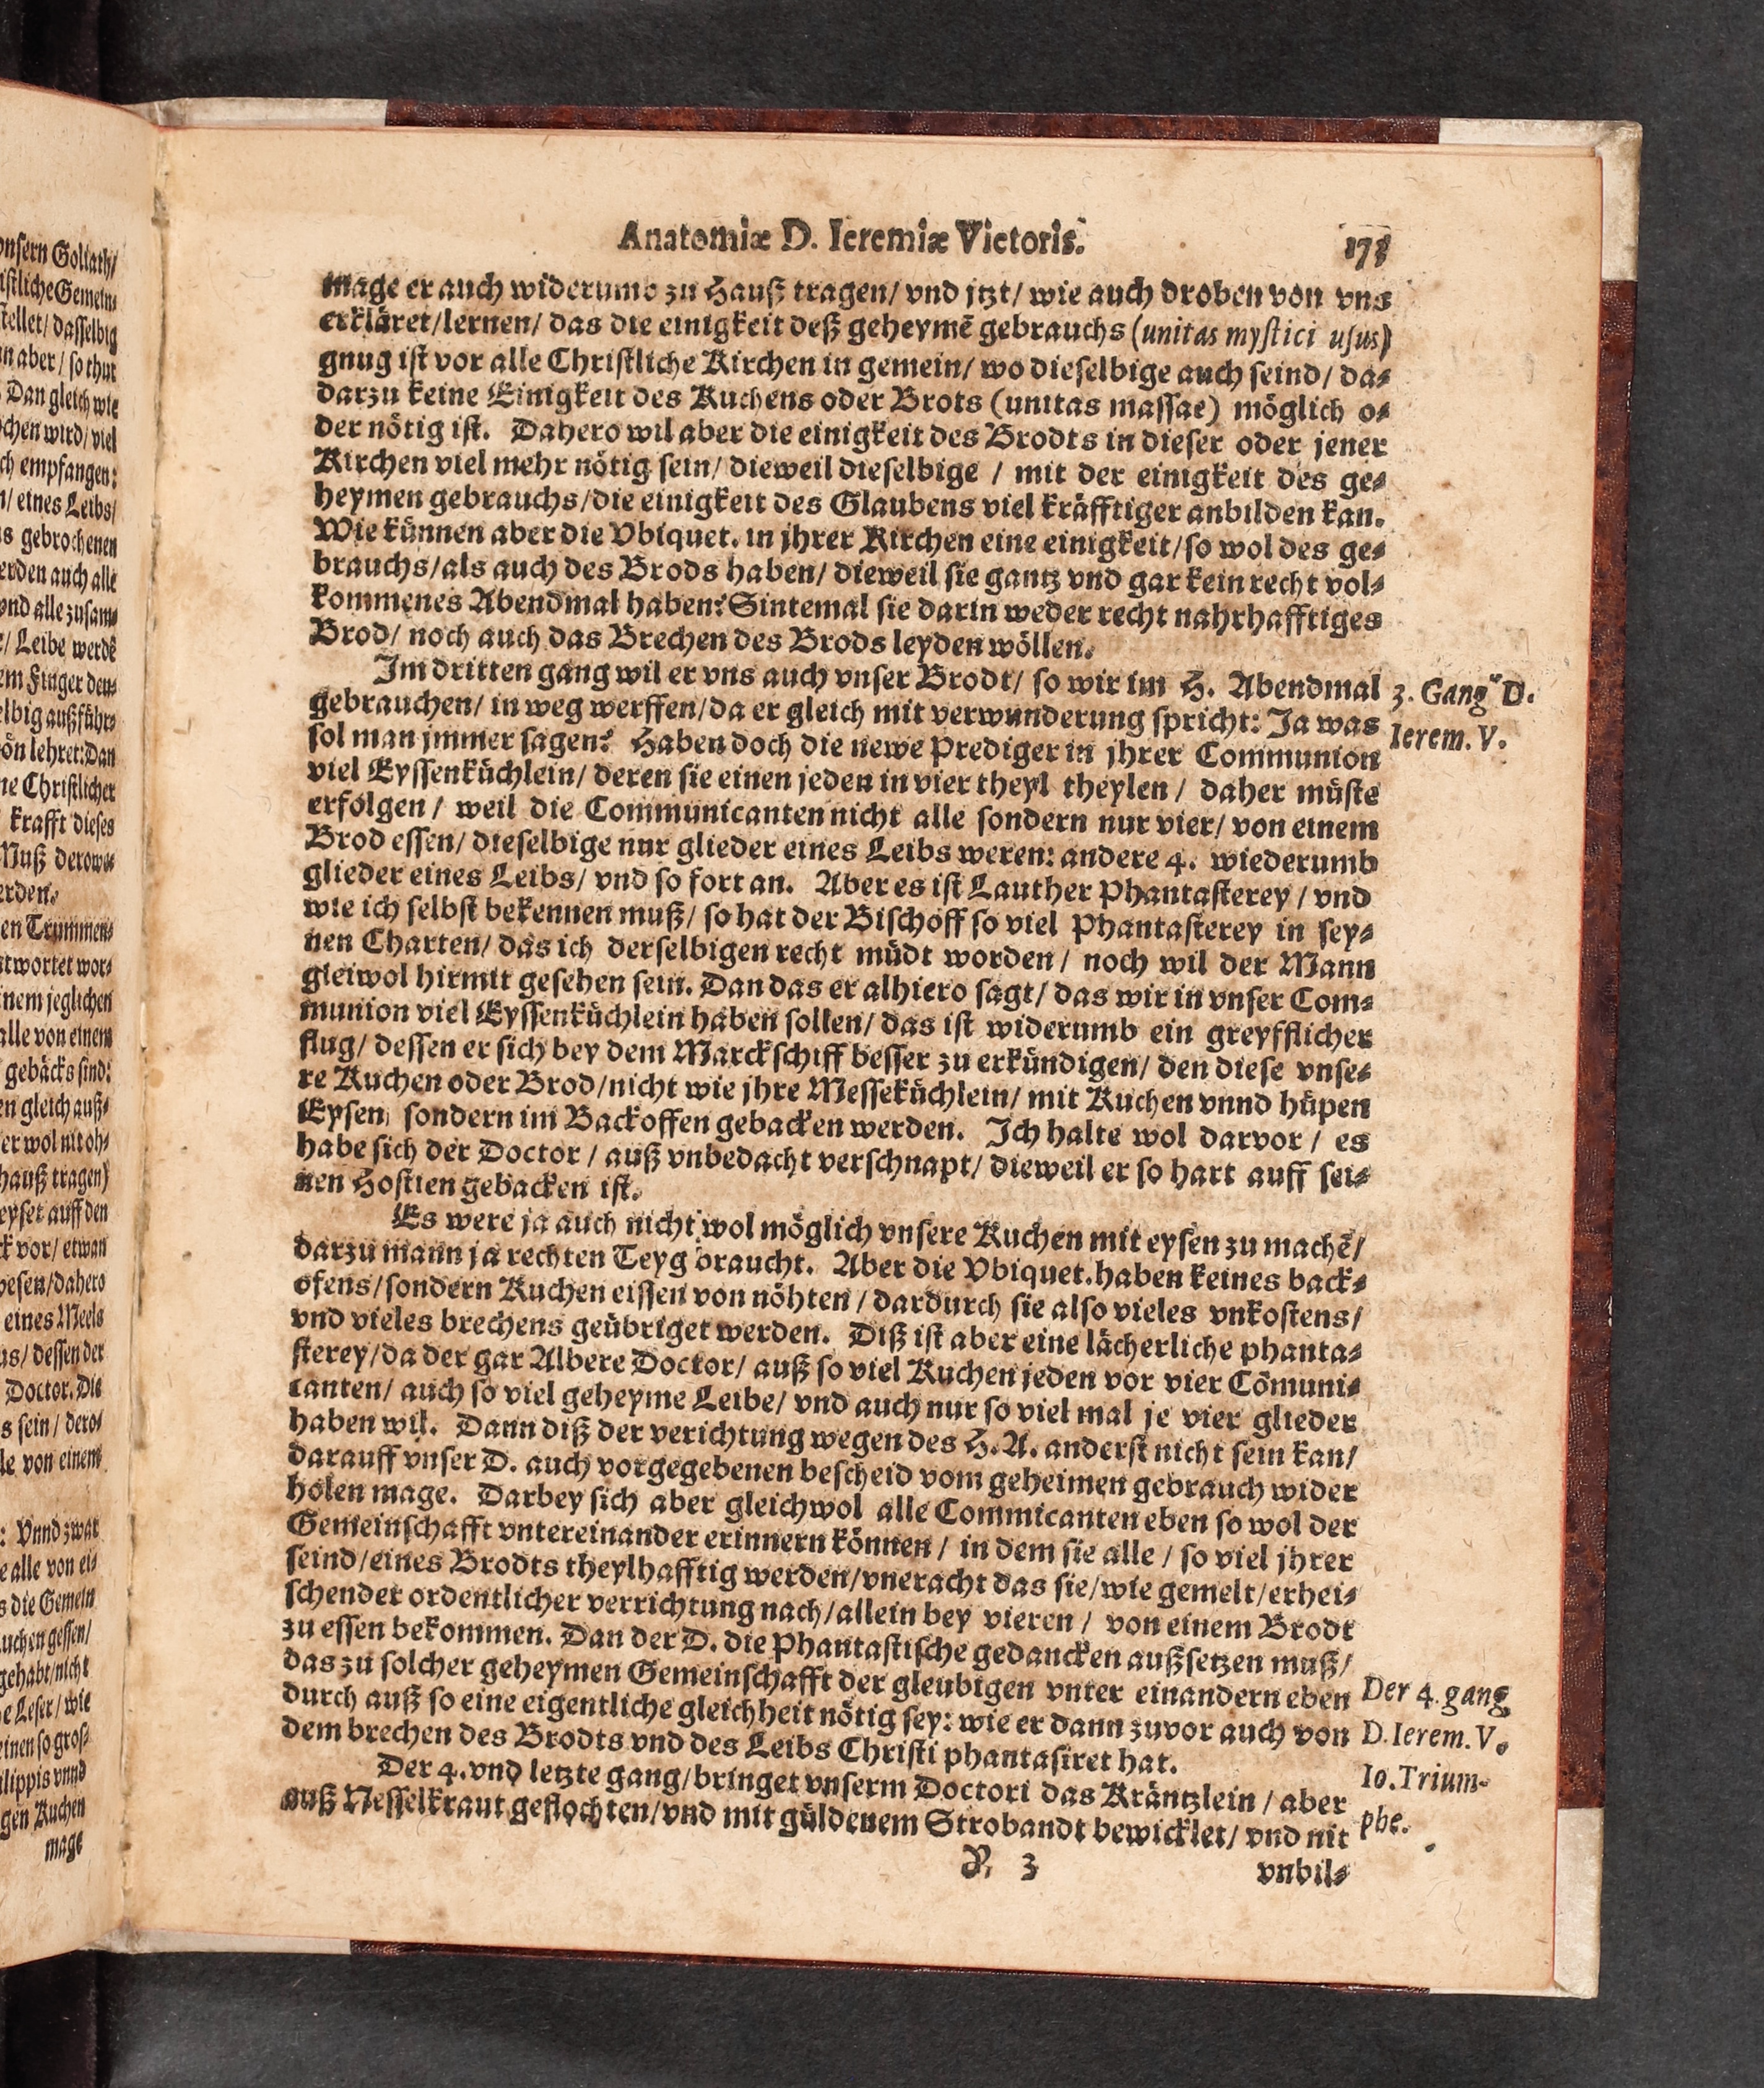 Anatomiæ D. Ieremiæ Victoris.
mage er auch widerumb zu Hauß tragen/ vnd jtzt/ wie auch droben von vns
erkläret/lernen/ das die einigkeit deß geheymē gebrauchs (unitas mystici usus)
gnug ist vor alle Christliche Kirchen in gemein/ wo dieselbige auch seind/ da⸗
darzu keine Einigkeit des Kuchens oder Brots (unitas massae) möglich o⸗
der nötig ist. Dahero wil aber die einigkeit des Brodts in dieser oder jener
Kirchen viel mehr nötig sein/ dieweil dieselbige / mit der einigkeit des ge⸗
heymen gebrauchs/die einigkeit des Glaubens viel kräfftiger anbilden kan.
Wie künnen aber die Vbiquet. in jhrer Kirchen eine einigkeit/so wol des ge⸗
brauchs/als auch des Brods haben/ dieweil sie gantz vnd gar kein recht vol⸗
kommenes Abendmal haben? Sintemal sie darin weder recht nahrhafftiges
Brod/ noch auch das Brechen des Brods leyden wöllen.
Im dritten gang wil er vns auch vnser Brodt/ so wir im H. Abendmal
gebrauchen/ in weg werffen/da er gleich mit verwunderung spricht: Ja was
sol man jmmer sagen? Haben doch die newe Prediger in jhrer Communion
viel Eyssenküchlein/ deren sie einen jeden in vier theyl theylen / daher müste
erfolgen / weil die Communicanten nicht alle sondern nur vier/ von einem
Brod essen/ dieselbige nur glieder eines Leibs weren: andere 4. wiederumb
glieder eines Leibs/ vnd so fort an. Aber es ist Lauther Phantasterey / vnd
wie ich selbst bekennen muß/ so hat der Bischoff so viel Phantasterey in sey⸗
nen Charten/ das ich derselbigen recht müdt worden / noch wil der Mann
gleiwol hirmit gesehen sein. Dan das er alhiero sagt/ das wir in vnser Com⸗
munion viel Eyssenküchlein haben sollen/ das ist widerumb ein greyfflicher
flug/ dessen er sich bey dem Marckschiff besser zu erkündigen/ den diese vnse⸗
re Kuchen oder Brod/nicht wie jhre Messeküchlein/ mit Kuchen vnnd hüpen
Eysen/ sondern im Backoffen gebacken werden. Ich halte wol darvor / es
habe sich der Doctor / auß vnbedacht verschnapt/ dieweil er so hart auff sei⸗
nen Hostien gebacken ist.
Es were ja auch nicht wol möglich vnsere Kuchen mit eysen zu machē/
darzu mann ja rechten Teyg braucht. Aber die Vbiquet. haben keines back⸗
ofens/sondern Kuchen eissen von nöhten / dardurch sie also vieles vnkostens/
vnd vieles brechens geübriget werden. Diß ist aber eine lächerliche phanta⸗
sterey/da der gar Albere Doctor/ auß so viel Kuchen jeden vor vier Cōmuni⸗
canten/ auch so viel geheyme Leibe/ vnd auch nur so viel mal je vier glieder
haben wil. Dann diß der verichtung wegen des H. A. anderst nicht sein kan/
darauff vnser D. auch vorgegebenen bescheid vom geheimen gebrauch wider
holen mage. Darbey sich aber gleichwol alle Commicanten eben so wol der
Gemeinschafft vntereinander erinnern können / in dem sie alle / so viel jhrer
seind/eines Brodts theylhafftig werden/vneracht das sie/wie gemelt/erhei⸗
schender ordentlicher verrichtung nach/allein bey vieren / von einem Brodt
zu essen bekommen. Dan der D. die Phantastische gedancken außsetzen muß/
das zu solcher geheymen Gemeinschafft der gleubigen vnter einandern eben
durch auß so eine eigentliche gleichheit nötig sey: wie er dann zuvor auch von
dem brechen des Brodts vnd des Leibs Christi phantasiret hat.
Der 4. vnd letzte gang/bringet vnserm Doctori das Kräntzlein / aber
auß Nesselkraut geflochten/vnd mit güldenem Strobandt bewicklet/ vnd nit
3
vnbil⸗
3. Gang D.
Ierem. V.
Der 4. gang
D. Ierem. V.
Io. Trium-
phe.